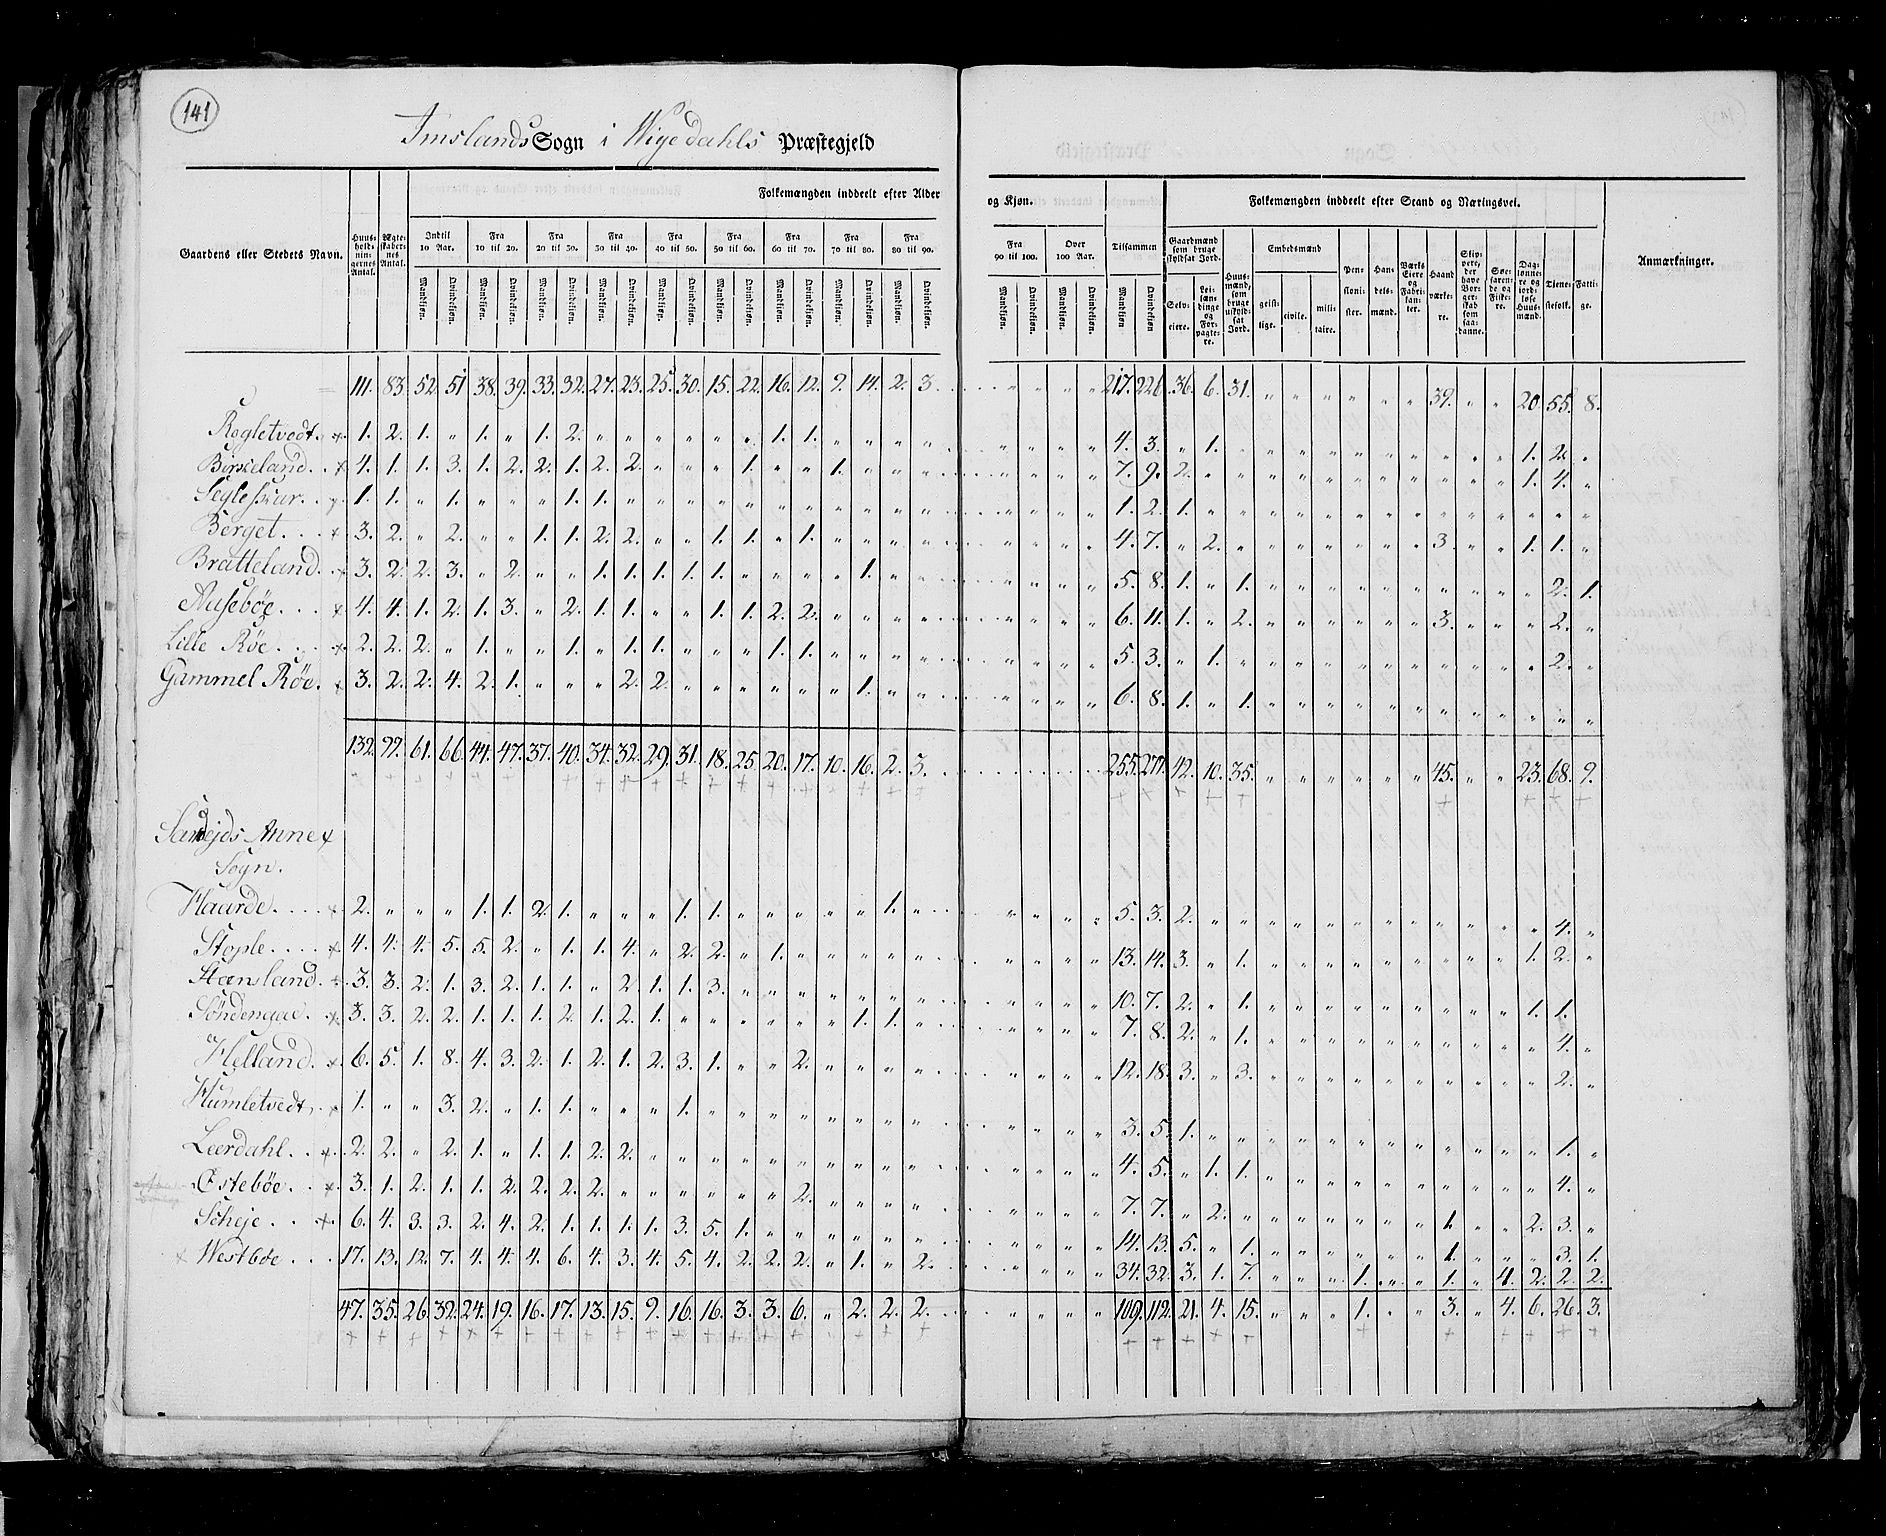 141
Imslands Sogn i Wigedahls Præstegjeld
Folkemængden inddeelt efter Alder og Kjøn. Folkemængden inddeelt efter Stand og Næringsvei.
Gaardens eller Stedets Navn. Huusholdningernes Antal. Ægteskabernes Antal. Indtil 10 Aar. Fra 10 til 20. Fra 20 til 30. Fra 30 til 40. Fra 40 til 50. Fra 50 til 60. Fra 60 til 70. Fra 70 til 80. Fra 80 til 90. Fra 90 til 100. Over 100 Aar. Tilsammen Gaardmænd som bruge skyldsat Jord. Huusmænd, som bruge uskyldsat Jord. Embedsmænd Pensionister. Handelsmænd. Værks Eiere og Fabrikanter. Haandværkere. Skippere, der have Borgerskab som saadanne. Søefarende og Fiskere. Daglønnere og jordløse Huusmænd. Tjenestefolk. Fattige. Anmærkninger.
Mandkiøn. Qvindekiøn. Mandkiøn. Qvindekiøn. Mandkiøn. Qvindekiøn. Mandkiøn. Qvindekiøn. Mandkiøn. Qvindekiøn. Mandkiøn. Qvindekiøn. Mandkiøn. Qvindekiøn. Mandkiøn. Qvindekiøn. Mandkiøn. Qvindekiøn. Mandkiøn. Qvindekiøn. Mandkiøn. Qvindekiøn. Mandkiøn Qvindekiøn Selveiere. Leilændinge og Forpagtere. geistlige. civile. militaire.
111. 83. 52. 51 38. 39. 33. 32. 27. 23. 25. 30. 15. 22. 16. 12. 9. 14. 2. 3. 217. 226. 36. 6. 31. 39. 20. 55. 8.
Rogletvedt. 1. 2. 1. " 1. " 1. 2. 1. 1. 4. 3. " 1. 1. 2.
Birkeland. 4. 1. 1. 3. 1. 2. 2. 1. 2. 2. 1. 1. 7. 9. 2. 1. 4.
Segleskar. 1. 1. " 1. 1. 1. 1. 2. 1.
Berget. 3. 2. " 2. 1. 1. 2. 2. 1. 1. " 1. 4. 7. " 2. 3. 1. 1.
Bratteland. 3. 2. 2. 3. " 2. 1. 1. 1. 1. 1. 1. 5. 8. 1. " 1. 2. 1.
Ausebøe. 4. 4. 1. 2. 1. 3. " 2. 1. 1. 1. 1. 2. 2. 6. 11. 1. " 2. 3. 2.
Lille Røe. 2. 2. 2. " 1. 1. " 1. 1. 1. 1. 5. 3. " 1. 2.
Gammel Røe. 3. 2. 2. 4. 2. 1. 2. 2. 1. 6. 8. 1. " 1.
132. 99. 61. 66. 44. 47. 37. 40. 34. 32. 29. 31. 18. 25. 20. 17. 10. 16. 2. 3. 255. 277. 42. 10. 35. 45. 23. 68. 9.
Sandejds Annex
Sogn.
Haarde. 2. 1. 1. 2. 1. 1. 1. 1. 5. 3. 2. 4.
Stople. 4. 4. 4. 5. 5. 2. " 1. 1. 4. " 2. 2. " 1. 13. 14. 3. " 1. 1. 2.
Stansland. 3. 3. 2. 1. 3. 2. 1. 1. " 2. 1. 1. 3. 10. 7. 2. " 1. 1. 1.
Søndenaae. 3. 3. 2. 2. 1. 1. 1. 2. 1. 2. 1. 1. 1. 7. 8. 2. " 1. 4.
Helland. 6. 5. 1. 8. 4. 3. 2. 1. 2. 1. 2. 3. 1. 2. 12. 18. 3. " 3. 2.
Humletvedt. 1. " " 3. 2. " 1. 1. 1. 3. 5. 1. 1.
Leerdahl. 2. 2. " 2. 1. " 1. 1. 2. 2. 4. 5. " 1. 1. 4.
Østebøe. 3. 1. 2. 1. 1. 2. 2. 2. 2. 2. 7. 7. " 2. 1. 2. 3.
Scheje. 6. 4. 3. 3. 2. 4. 2. 1. 1. 1. 1. 3. 5. 1. 14. 13. 5. " 1. 1. 3. 1.
Westbøe 17. 13. 12. 7. 4. 4. 4. 6. 4. 3. 4. 5. 4. 2. 2. 2. " 1. " 2. 34. 32. 3. 1. 7. 1. 1. " 4. 2. 2. 2.
47. 35. 26. 32. 24. 19. 16. 17. 13. 15. 9. 16. 16. 3. 3. 6. " 2. 2. 2. 109. 112. 21. 4. 15. 1. 3. " 4. 6. 26. 3.